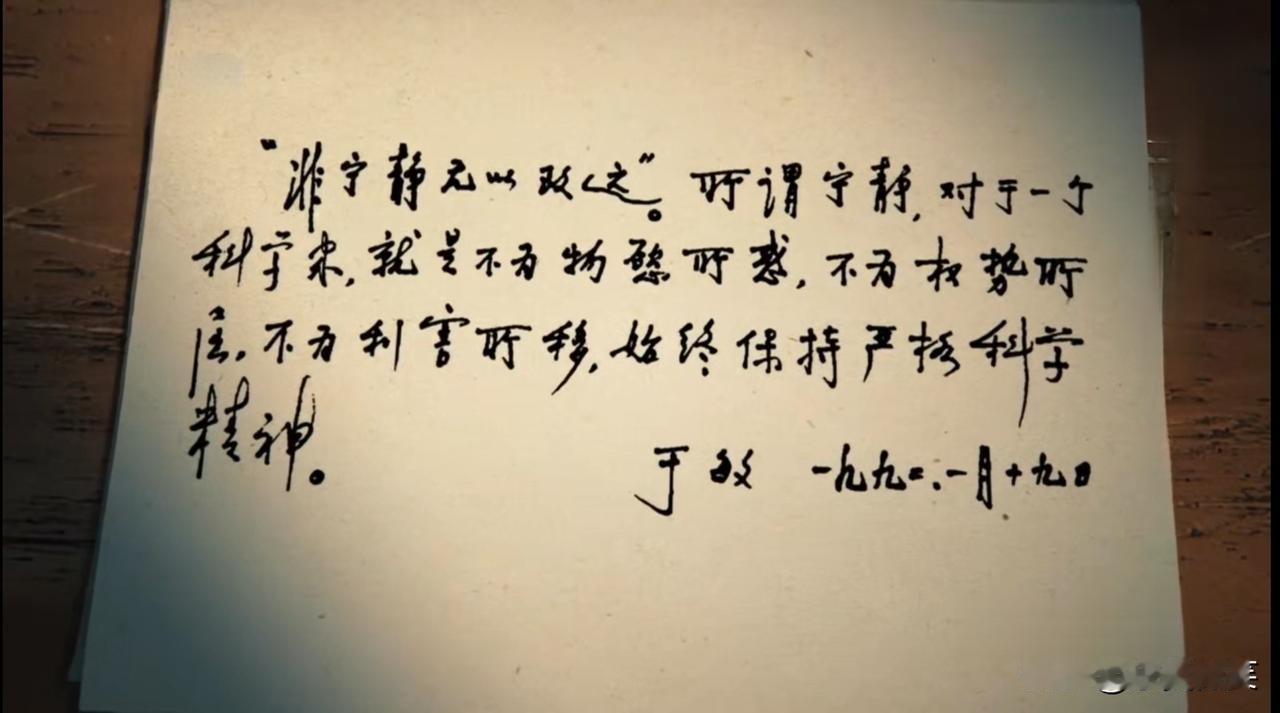 “非宁静无以致远”。所谓宁静，对于一个
科学家，就是不为物慾所惑，不为权势所
屈，不为利害所移，始终保持严格科学
精神。
于敏 一九九二.一月十九日